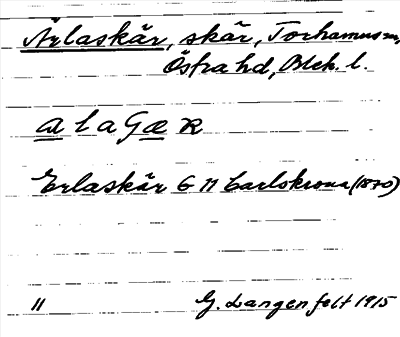 Ärlaskär, skär, Torhamns sn,
Östra hd, Blek. l.
a l a G æ R
Erlaskär G N Carlskrona (1870)
11 G. Langenfelt 1915